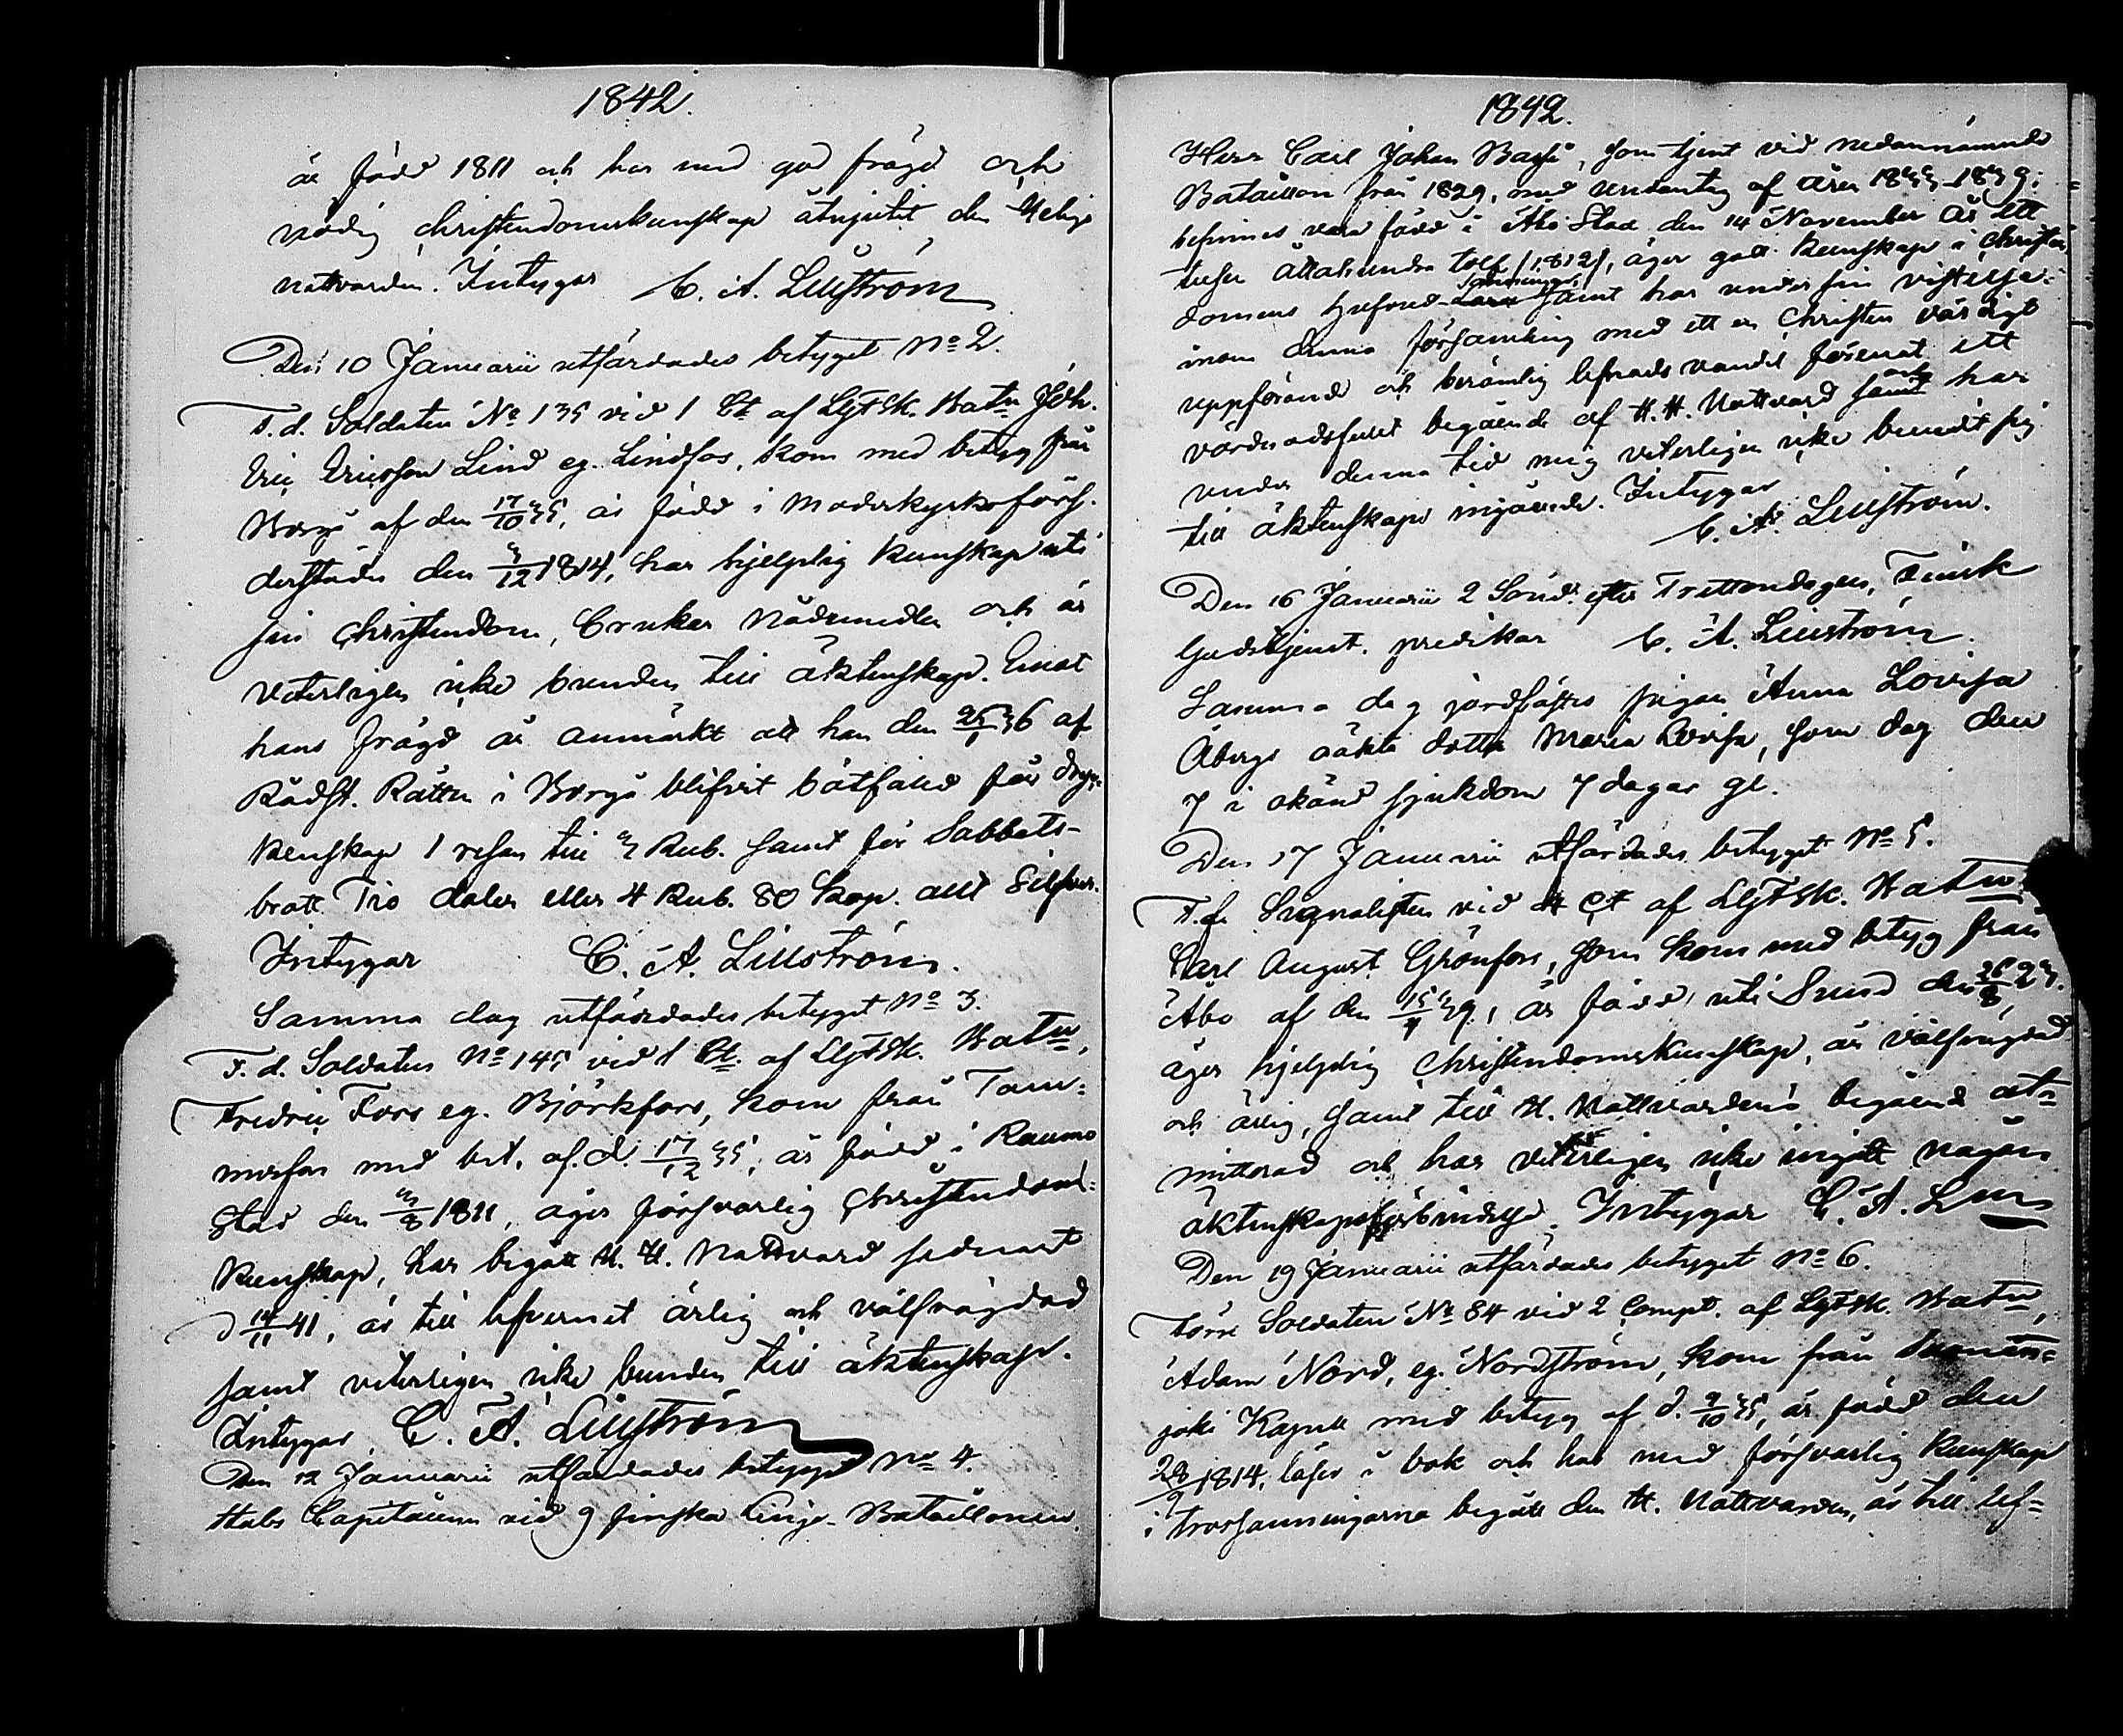 1842.
är född 1811 och har med god frägd och
nödig christendomskunskap åtnjutit den Helige
nattvarden. Intygar C. A. Lillström
Den 10 Januarii utfärdades betyget No 2.
F. d. Soldaten No 135 vid 1 Ct af LGfSk. Batn Joh.
Eric Ericsson Lind eg. Lindfors, kom med betyg från
Borgå af den 17/10 35, är född i Moderkyrkoförs.
derstädes den 3/12 1814, har hjelplig kunskap uti
sin Christendom, brukar nådemedlen och är
veterligen icke bunden till äktenskap. Emot
hans frägd är anmärkt att han den 25/1 36 af
Rådst. Rätten i Borgå blifvit bötfälld för dryc-
kenskap 1 resan till 3 Rub. samt för Sabbats-
brott Tio daler eller 4 Rub. 80 Kop. allt Silfver.
Intygar C. A. Lillström.
Samma dag utfärdades betyget No 3.
F. d. Soldaten No 145 vid 1 Ct. af LGfSk. Batn,
Fredric Fors eg. Björkfors, kom från Tam-
merfors med bet. af d. 17/12 35, är född i Raumo
Stad den 3/8 1811, äger försvarlig Christendoms-
kunskap, har begått H. H. Nattvard sednast
d 14/11 41, är till lefvernet ärlig och välfrägdad
samt veterligen icke bunden till äktenskap.
Intygar C. A. Lillström
Den 12 Januarii utfärdades betyget No 4.
Stabs Capitainen vid 9 finska Linje-Bataillonen
1842.
Herr Carl Johan , som tjent vid nedannämnde
Bataillon från 1829, med undantag af åren 1833-1839;
befinnes vara född i Åbo Stad den 14 November År Ett
tusen åttahundra tolf (1812), äger godt kunskap i Christen-
domens hufvud sanningar samt har under sin vistelse
inom denna församling med ett en Christen värdigt
uppförande och berömlig lefnads vandel förenat ett
vördnadsfullt begående af H. H. Nattvard samt och har
under denna tid mig veterligen icke bundit sig
till äktenskaps ingående. Intygar
C. A. Lillström.
Den 16 Januarii 2 Sönd. efter Trettondagen, Finsk
Gudstjenst. predikar C. A. Lillström.
Samma dag jordfästes pigan Anna Lovisa
Åbergs oäkta dotter Maria Lovisa, som dog den
7 i okänd sjukdom 7 dagar gl.
Den 17 Januarii utfärdades betyget No 5.
F. d. Signalisten vid 4 Ct af LGfSk. Batn
Carl August Grönfors, som kom med betyg från
Åbo af den 15/9 39, är född uti Sund den 26/8 23.
äger hjelplig Christendomskunskap, är välfrägdad
och ärlig, samt till H. Nattvardens begående ad-
mitterad och har veterligen icke ingått någon
äktenskapsförbindelse. Intygar C. A. Lm
Den 19 Januarii utfärdades betyget No 6.
Förre Soldaten No 84 vid 2 Comp. af LGfSk. Batn,
Adam Nord, eg. Nordström, kom från
joki Kapell med betyg af d. 9/10 35, är född den
28/9 1814, läser i bok och har med försvarlig kunskap
i trossanningarna begått den H. Nattvarden, är till lef-